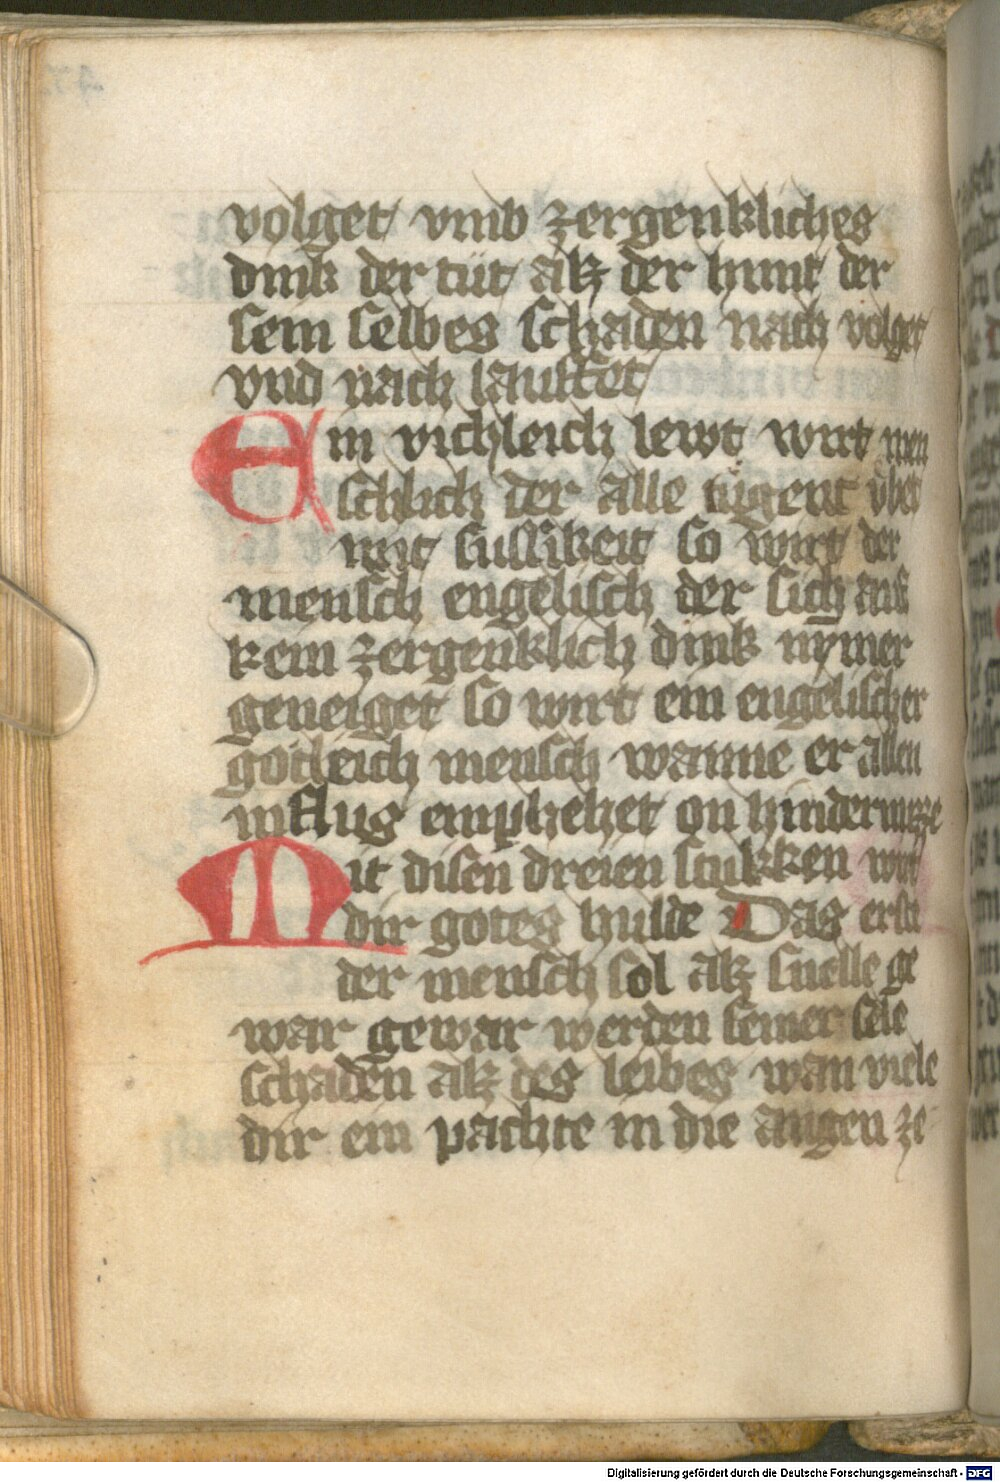 volget vmb zergenkliches
dink der tüt alz der hunt der
sein selbes schaden nach volget
vnd nach lauffet
Ein vichleich lewt wirt men
schlich der alle tugent übet
mit sussikeit so wirt der
mensch engelisch der sich auf
kein zergenklich dink nymer
geneiget so wirt ein engelischer
gotleich mensch wanne er allen
influs emphehet on hindernizze
Mit disen dreien stukken wirt
dir gotes hulde Das erst
der mensch sol alz snelle ge
war gewar werden seiner sele
schaden alz des leibes wan viele
dir ein pachte in die augen ze
Digitalisierung gefördert durch die Deutsche Forschungsgemeinschaft - DFG